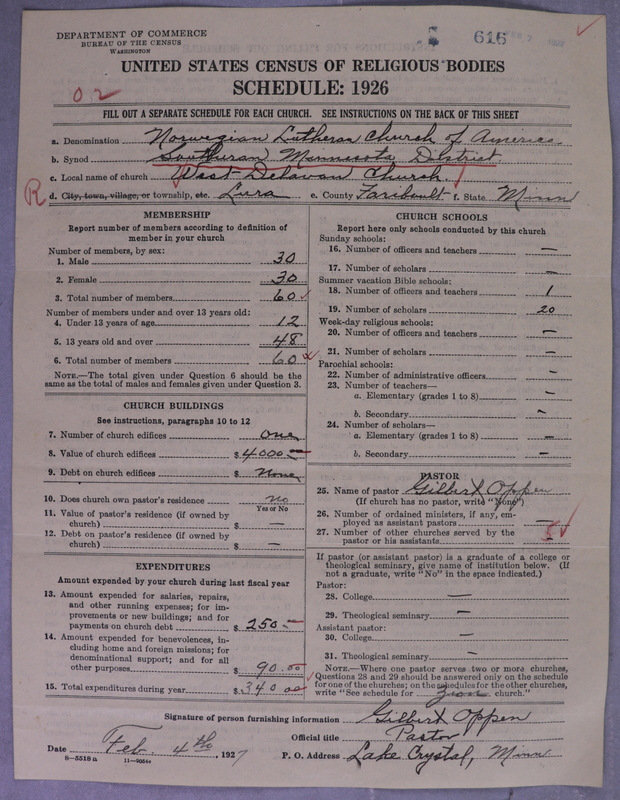 DEPARTMENT OF COMMERCE
BUREAU OF THE CENSUS
WASHINGTON
616
UNITED STATES CENSUS OF RELIGIOUS BODIES
SCHEDULE: 1926
02
FILL OUT A SEPARATE SCHEDULE FOR EACH CHURCH. SEE INSTRUCTIONS ON THE BACK OF THIS SHEET
a. Denomination Norwegian Lutheran Church of America
b. Synod Southern Minnesota District
c. Local name of church West Delavan Church
R
d. City, town, village, or township, etc. Lura e. County Faribault f. State Minn
MEMBERSHIP
Report number of members according to definition of
member in your church
Number of members, by sex:
1. Male 30
2. Female 30
3. Total number of members 60
Number of members under and over 13 years old:
4. Under 13 years of age 12
5. 13 years old and over 48
6. Total number of members 60
NOTE.—The total given under Question 6 should be the
same as the total of males and females given under Question 3.
CHURCH BUILDINGS
See instructions, paragraphs 10 to 12
7. Number of church edifices one
8. Value of church edifices $ 4000 —
9. Debt on church edifices $ None
10. Does church own pastor's residence no
Yes or No
11. Value of pastor's residence (if owned by
church) $ —
12. Debt on pastor's residence (if owned by
church) $ —
EXPENDITURES
Amount expended by your church during last fiscal year
13. Amount expended for salaries, repairs,
and other running expenses; for im-
provements or new buildings; and for
payments on church debt $ 250 —
14. Amount expended for benevolences, in-
cluding home and foreign missions; for
denominational support; and for all
other purposes $ 90.00
15. Total expenditures during year $ 340 00
CHURCH SCHOOLS
Report here only schools conducted by this church
Sunday schools:
16. Number of officers and teachers —
17. Number of scholars —
Summer vacation Bible schools:
18. Number of officers and teachers 1
19. Number of scholars 20
Week-day religious schools:
20. Number of officers and teachers —
21. Number of scholars —
Parochial schools:
22. Number of administrative officers —
23. Number of teachers—
a. Elementary (grades 1 to 8) —
b. Secondary —
24. Number of scholars—
a. Elementary (grades 1 to 8) —
b. Secondary —
PASTOR
25. Name of pastor Gilbert Oppen
(If church has no pastor, write "None")
26. Number of ordained ministers, if any, em-
ployed as assistant pastors —
27. Number of other churches served by the
pastor or his assistants 5
If pastor (or assistant pastor) is a graduate of a college or
theological seminary, give name of institution below. (If
not a graduate, write "No" in the space indicated.)
Pastor:
28. College —
29. Theological seminary —
Assistant pastor:
30. College —
31. Theological seminary —
NOTE.—Where one pastor serves two or more churches,
Questions 28 and 29 should be answered only on the schedule
for one of the churches; on the schedules for the other churches,
write "See schedule for Zion church."
Signature of person furnishing information Gilbert Oppen
Official title Pastor
Date Feb. 4th, 1927
P. O. Address Lake Crystal, Minn
8—5518a 11—9054a